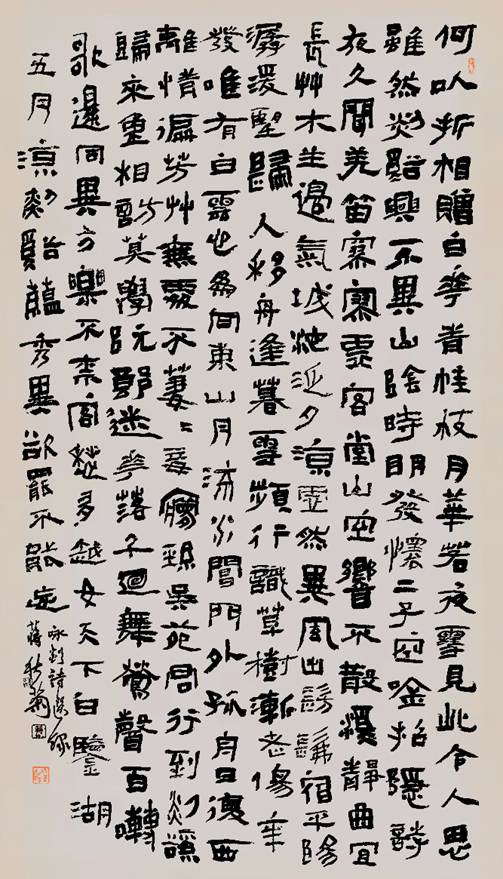 何以折相贈白花青桂枝月華若夜雪見此令人思
雖然剡谿興不異山陰時明發懷二子空吟招隱詩
夜久聞羌笛寥寥虛客堂山空響不散溪靜曲宜
長艸木生邊氣城池泛夕涼虛然異風出髣髴宿平陽
潺湲望歸人移舟逢暮雪頻行識草樹漸老傷年
發唯有白雲心為向東山月流水閶門外孤舟日復西
離情遍芳艸無處不萋〻妾夢經吳苑君行到剡谿
歸來重相訪莫學阮郎迷花落千迴舞鶯聲百囀
歌還同異方樂不柰客愁多越女天下白鑒湖
五月涼剡谿蘊秀異欲罷不能忘
咏剡詩選錄
蔣秋菊